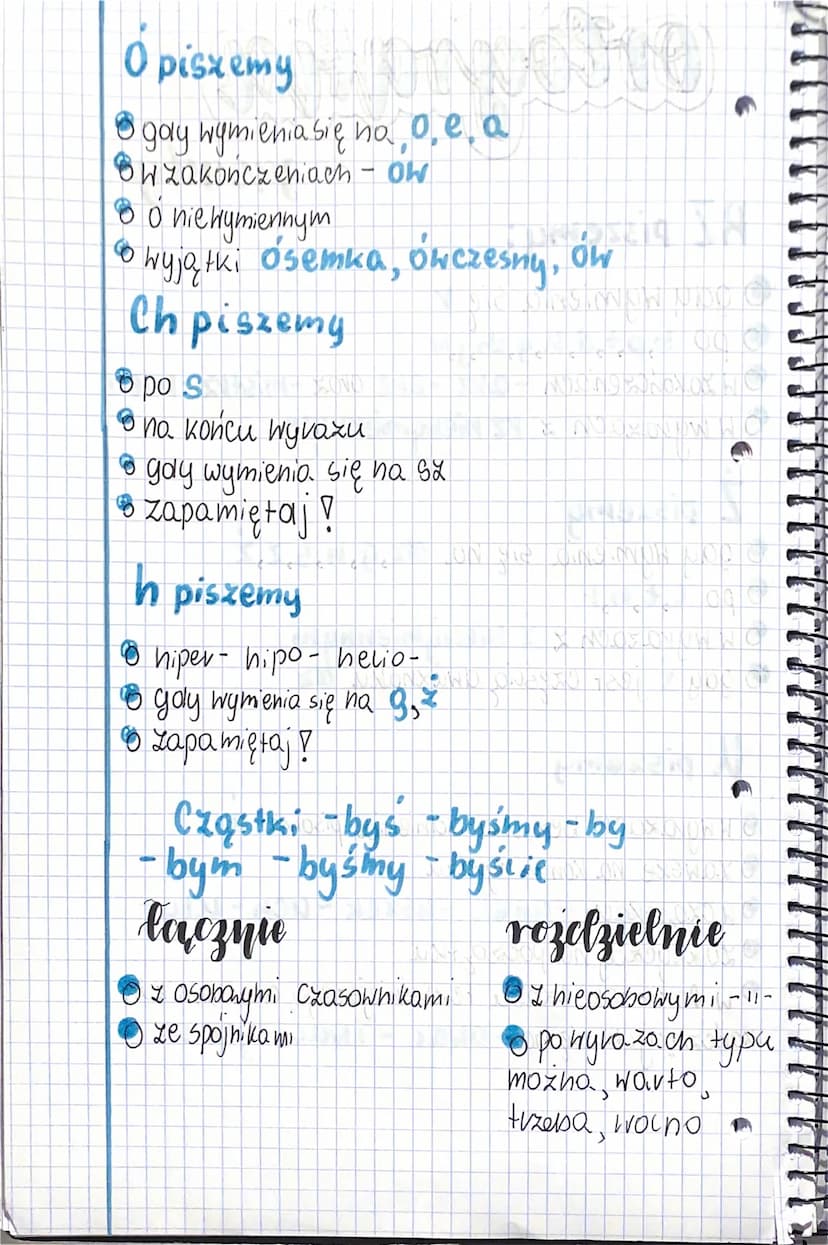 Ó piszemy
gdy wymienia się na o, e, a
w zakończeniach - ów
ó niewymiennym
wyjątki ósemka, ówczesny, ów
Ch piszemy
po s
na końcu wyrazu
gdy wymienia się na sz
zapamiętaj!
h piszemy
hiper- hipo- helio-
gdy wymienia się na g, ż
zapamiętaj!
Cząstki -byś -byśmy -by
-bym -byśmy -byście
łącznie
z osobowymi czasownikami
ze spójnikami
rozdzielnie
z nieosobowymi -11-
po wyrazach typu
można, warto,
trzeba, wolno